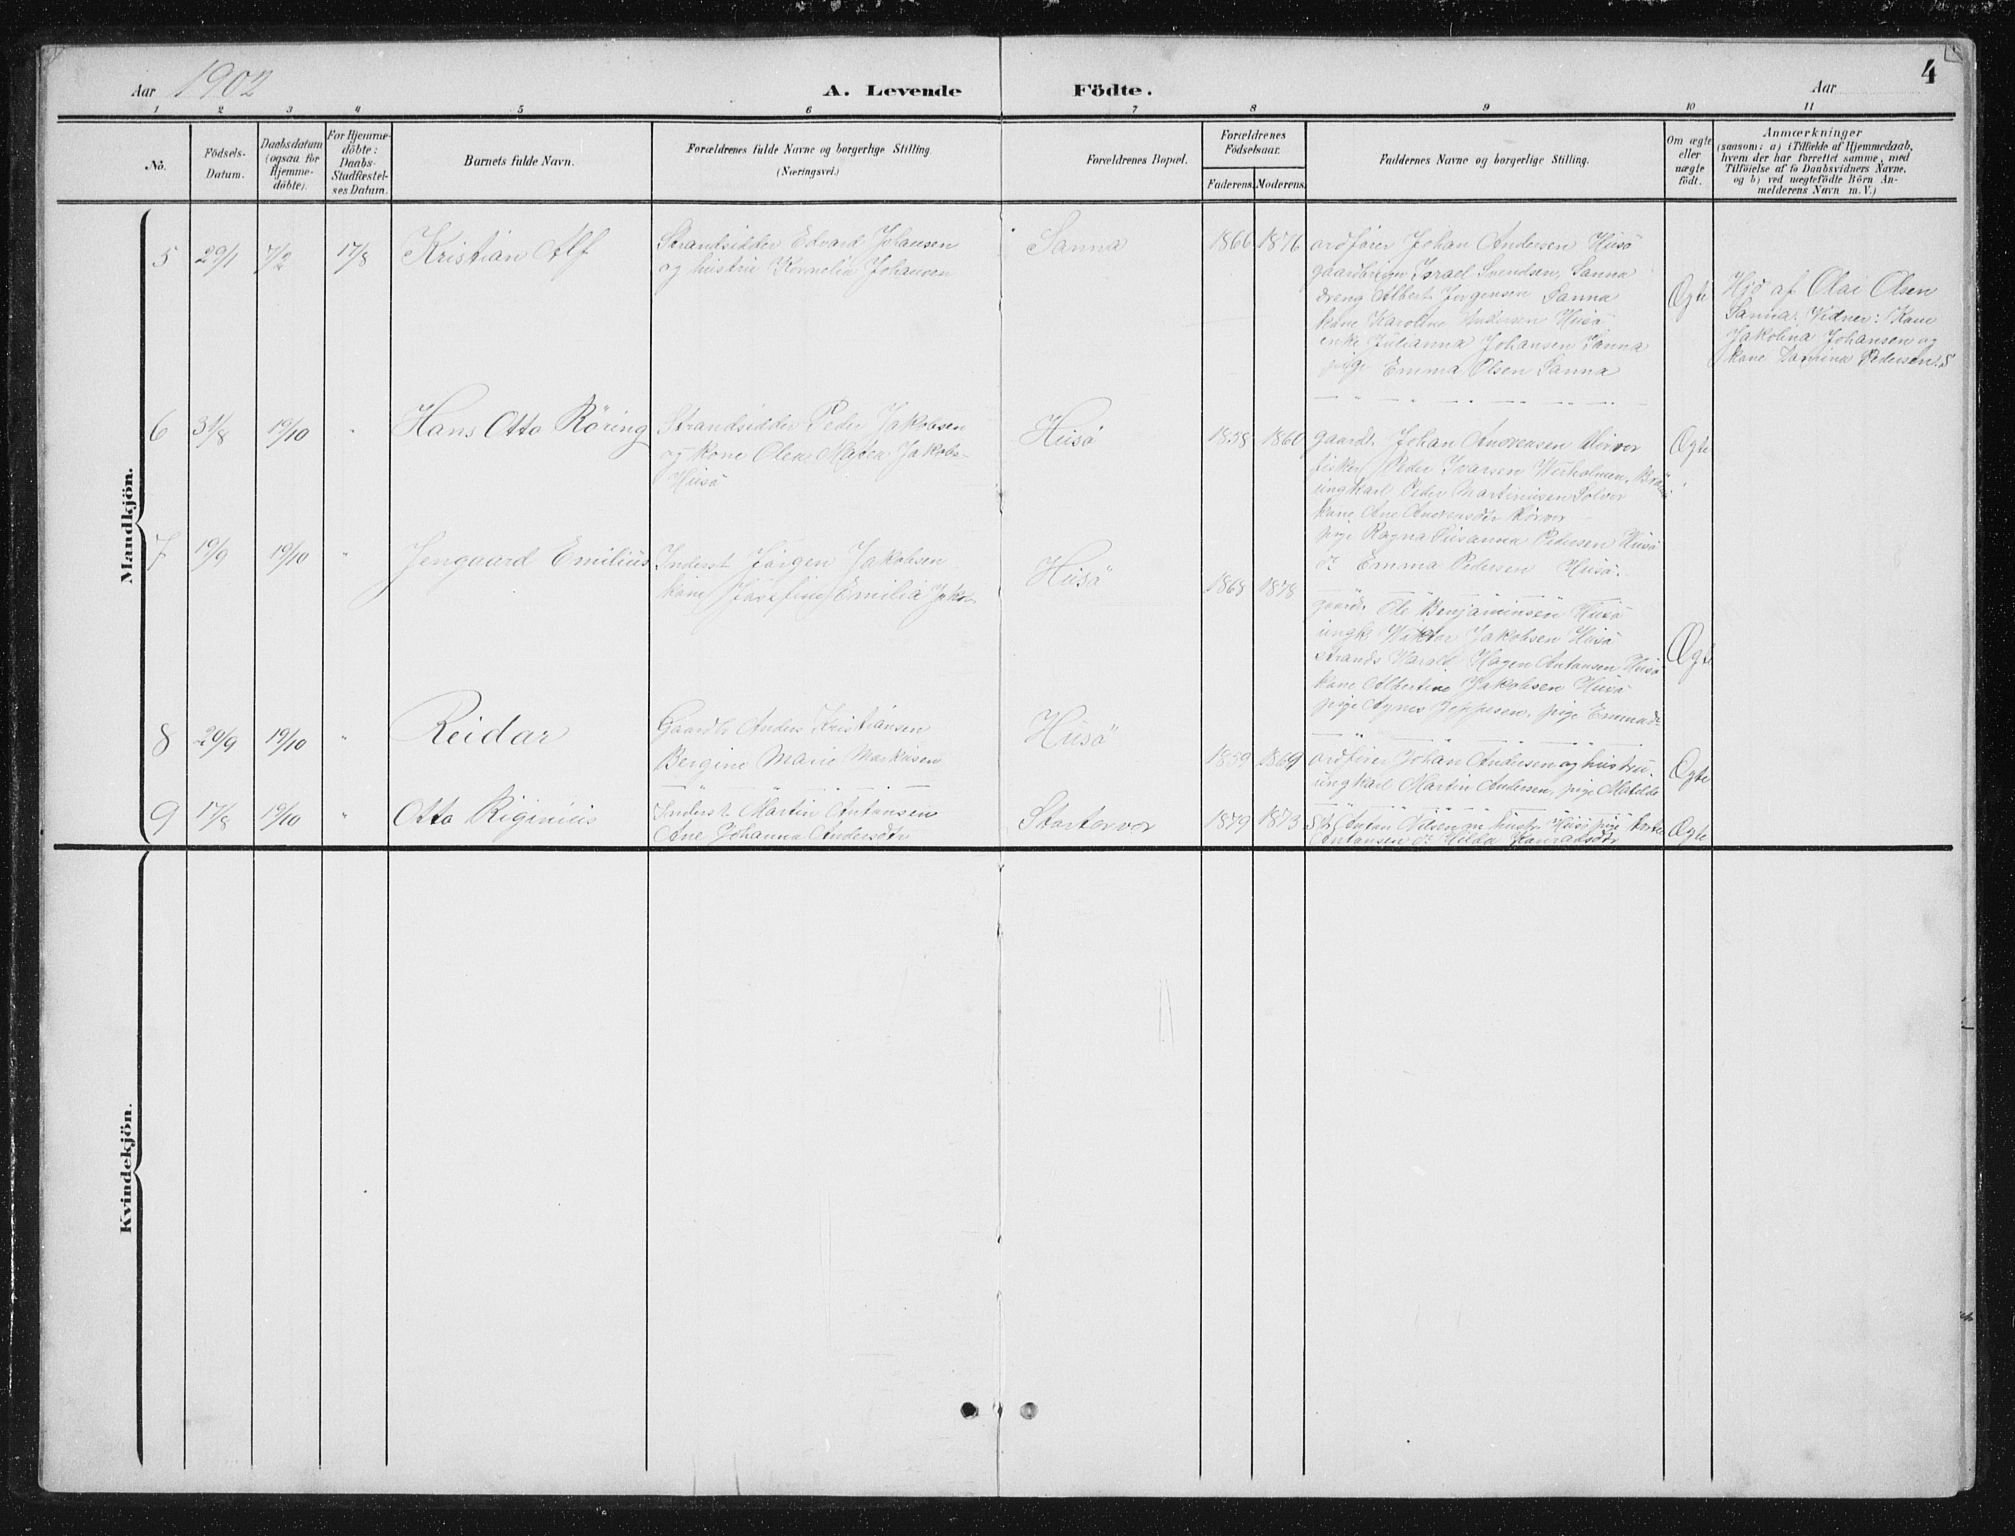 Aar 1902
A. Levende Födte.
Aar
4
1 2 3 4 5 6 7 8 9 10 11
No.
Födsels-
Datum.
Daabsdatum
(ogsaa för
Hjemme-
döbte).
For Hjemme-
döbte:
Daabs-
Stadfæstel-
ses Datum.
Barnets fulde Navn.
Forældrenes fulde Navne og borgerlige Stilling.
(Næringsvei.)
Forældrenes Bopæl.
Forældrenes
Födselsaar.
Faderens. Moderens.
Faddernes Navne og borgerlige Stilling.
Om ægte
eller
uægte
födt.
Anmærkninger
(saasom: a) i Tilfælde af Hjemmedaab,
hvem der har forrettet samme, med
Tilföielse af to Daabsvidners Navne,
og b) ved uægtefödte Börn An-
melderens Navn m. V.)
Mandkjön.
5 29/1 7/2 17/8 Kristian Alf
Strandsidder Edvard Johansen
og hustru Kornelia Johansen
Sanna
1866 1876
ordfører Johan Andersen Husö
Israel Svendsen, Sanna
dreng Albert Jørgensen Sanna
kone Karoline Andersen Husö
enke Julianna Johansen Sanna
pige Emma Olsen Sanna
Ægte
Hjd af Olai Olsen
Sanna. Vidner: Kone
Jakolina Johansen og
kone Pedersen. S
6 31/8 19/10 " Hans Otto Röring
Strandsidder Peder Jakobsen
og kone Olea Matea Jakobs-
Husö
Husö
1858 1860
gaardb. Johan Andreasen
fisker Peder Ivarsen
ungkarl Peder Martinusen Solvær
kone Ane Andreasdtr
pige Ragna Susanna Pedersen Husö
do Emma Pedersen Husö.
Ægte
7 19/9 19/10 " Jengaard Emilius
Inderst Jørgen Jakobsen
kone Emilia Jakob-
Husö
1868 1878
gaardb Ole Benjaminsen Husö
ungk Jakobsen Husö
strands Harald Hagen Antonsen Husö
kone Albertine Jakobsen Husö
pige Agnes Jeppesen, pige Emma do
Ægte
8 20/9 19/10 " Reidar
Gaardb Anders Kristiansen
Bergine Marie Markusen
Husö
1859 1869
ordfører Johan Andersen og hustru.
ungkarl Martin Andersen, pige Matilde
Ægte
9 17/8 19/10 " Otto Riginius
Inderst Martin Antonsen
Ane Johanna Andersdtr
1879 1873
Anton Nilsen m hustr. Husö pige
Antonsen do Hilda Konradsdtr
Ægte
Kvindekjön.